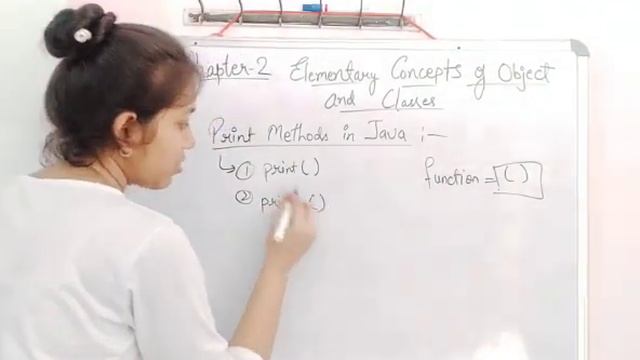 Chapter-2 Elementary Concepts of Object
and Classes
Print Methods in Java :-
① print()
function = ()
②